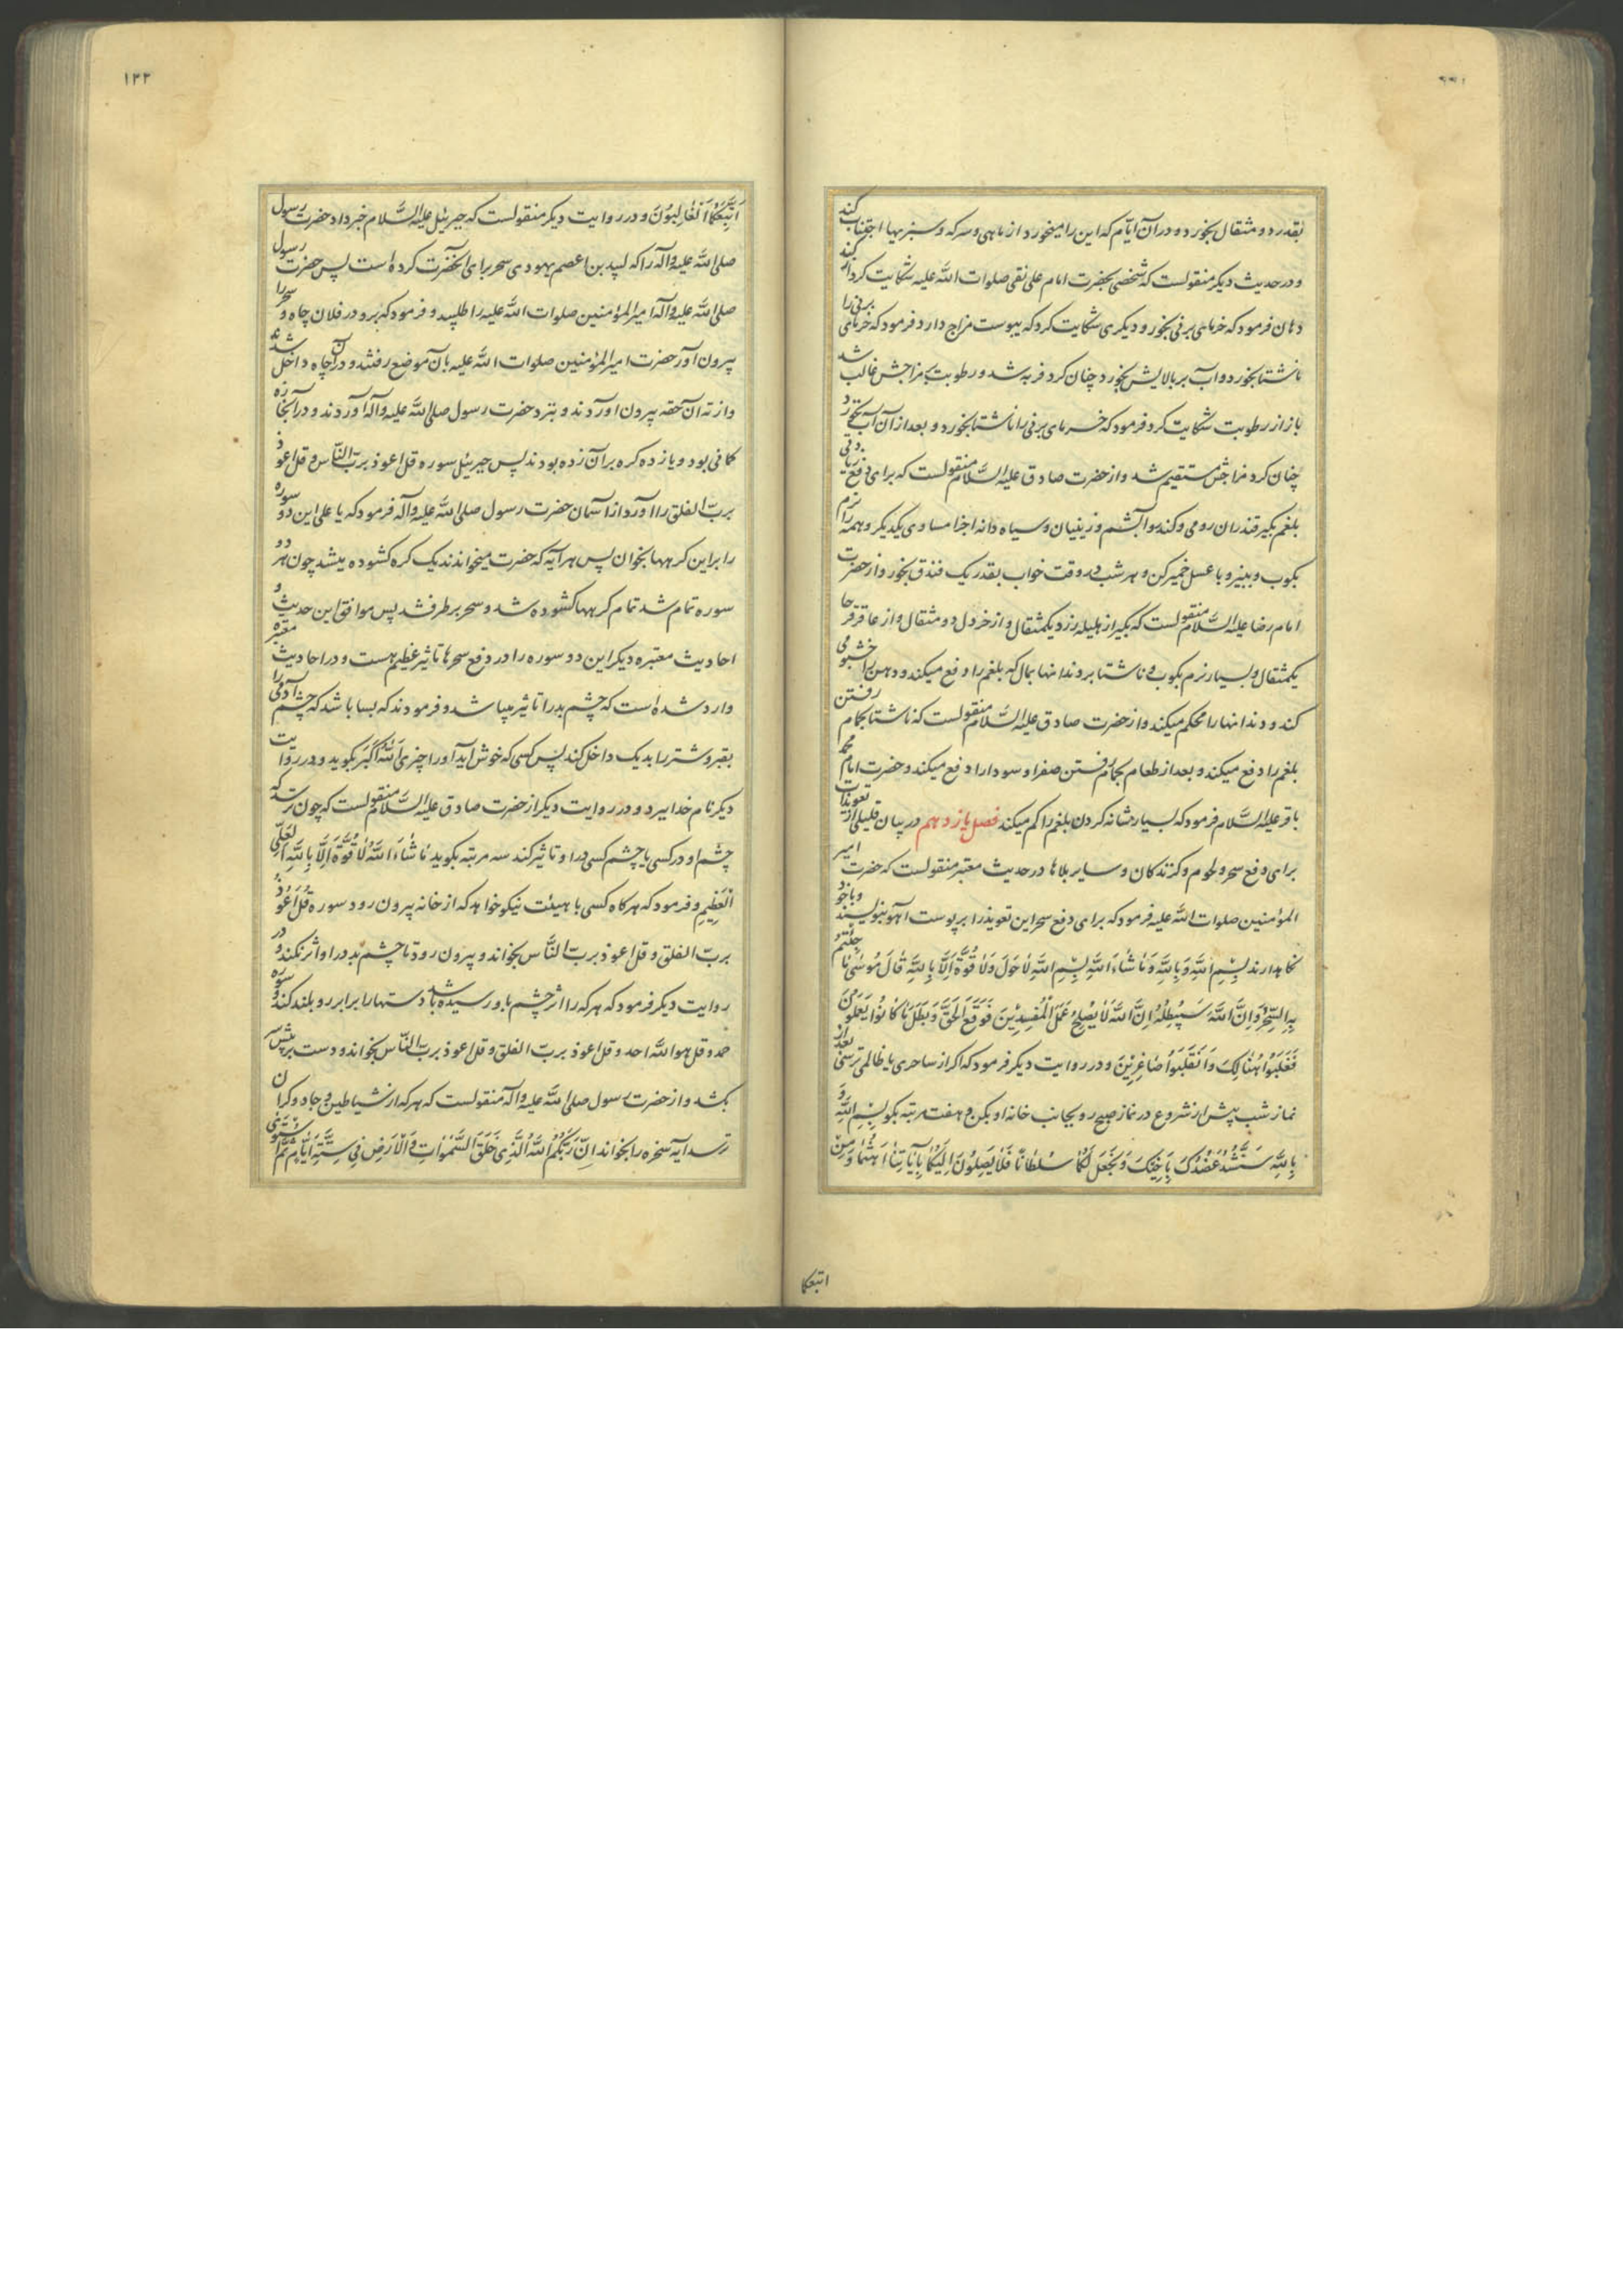 بقدر دو مثقال بخورد و در آن ایام که این را میخورد از ماهی و سرکه و سبزیها اجتناب کند
و در حدیث دیکر منقولست که شخصی بحضرت امام علی نقی صلوات الله علیه شکایت کرد از کند
دهان فرمود که خرمای برنی بخور و دیکری شکایت کرد که یبوست مزاج دارد فرمود که خرمای برنی را
ناشتا بخورد و آب بر بالایش بخورد چنان کرد فربه شد و رطوبت بمزاجش غالب شد
باز از رطوبت شکایت کرد فرمود که خرمای برنی را ناشتا بخورد و بعد از آن آب نخورد
چنان کرد مزاجش مستقیم شد و از حضرت صادق علیه السَّلام منقولست که برای دفع زیادتی
بلغم بکیر قندران رومی و کندر و آبشم و زینیان و سیاه دانه اجزا مساوی یکدیکر و همه را نرم
بکوب و ببیز و با عسل خمیر کن و هر شب در وقت خواب بقدر یک فندق بخور و از حضرت
امام رضا علیه السَّلام منقولست که بکیر از هلیله زرد یکمثقال و از خردل دو مثقال و از عاقرقرحا
یکمثقال و بسیار نرم بکوب و ناشتا بر دندانها بمال که بلغم را دفع میکند و دهن را خشبوی
کند و دندانها را محکم میکند و از حضرت صادق علیه السَّلام منقولست که ناشتا بحمام رفتن
بلغم را دفع میکند و بعد از طعام بحمام رفتن صفرا و سودا را دفع میکند و حضرت امام محمد
باقر علیه السَّلام فرمود که بسیار شانه کردن بلغم را کم میکند فصل یازدهم در بیان قلیلی از تعویذات
برای دفع سحر و لحوم و کزندکان و سایر بلاها در حدیث معتبر منقولست که حضرت امیر
المؤمنین صلوات الله علیه فرمود که برای دفع سحر این تعویذ را بر پوست آهو بنویسند و با خود
نکاهدارند بِسْمِ اللَّهِ وَبِاللَّهِ وَمَا شَاءَ اللَّهُ بِسْمِ اللَّهِ لَا حَوْلَ وَلَا قُوَّةَ اِلَّا بِاللَّهِ قَالَ مُوسَى مَا جِئْتُمْ
بِهِ السِّحْرُ اِنَّ اللَّهَ سَيُبْطِلُهُ اِنَّ اللَّهَ لَا يُصْلِحُ عَمَلَ الْمُفْسِدِينَ فَوَقَعَ الْحَقُّ وَبَطَلَ مَا كَانُوا يَعْمَلُونَ
فَغُلِبُوا هُنَالِكَ وَانْقَلَبُوا صَاغِرِينَ و در روایت دیکر فرمود که اکر از ساحری یا ظالمی ترسی بعد از
نماز شب پیش از شروع در نماز صبح رو بجانب خانه او بکن و هفت مرتبه بکو بِسْمِ اللَّهِ وَ
بِاللَّهِ سَنَشُدُّ عَضُدَكَ بِاَخِيكَ وَنَجْعَلُ لَكُمَا سُلْطَانًا فَلَا يَصِلُونَ اِلَيْكُمَا بِآيَاتِنَا اَنْتُمَا وَمَنِ
اتبعکما
۱۲۲
اتَّبَعَكُمَا الْغَالِبُونَ و در روایت دیکر منقولست که جبرئیل علیه السَّلام خبر داد حضرت رسول
صلی الله علیه و آله را که لبید بن اعصم یهودی سحر برای آنحضرت کرده است پس حضرت رسول
صلی الله علیه و آله امیر المؤمنین صلوات الله علیه را طلبید و فرمود که برو در فلان چاه و سحر را
بیرون آور حضرت امیر المؤمنین صلوات الله علیه بان موضع رفتند و در آن چاه داخل شدند
و از ته آن حقه بیرون اوردند و بنزد حضرت رسول صلی الله علیه و آله آوردند و در آنجا زه
کمانی بود و یازده کره بر آن زده بودند پس جبرئیل سوره قل اعوذ بربّ النّاس و قل اعوذ
بربّ الفلق را اورد از آسمان حضرت رسول صلی الله علیه و آله فرمود که یا علی این دو سوره
را بر این کرهها بخوان پس هر آیه که حضرت میخواندند یک کره کشوده میشد چون هر دو
سوره تمام شد تمام کرهها کشوده شد و سحر بر طرف شد پس موافق این حدیث و
احادیث معتبره دیکر این دو سوره را در دفع سحرها تاثیر عظیم هست و در احادیث معتبره
وارد شده است که چشم بد را تاثیر میباشد و فرمودند که بسا باشد که چشم آدمی را
بقبر و شتر را بدیک داخل کند پس کسی که خوش اید او را چیزی اَللَّهُ اَكْبَرُ بکوید و در روایت
دیکر نام خدا ببرد و در روایت دیکر از حضرت صادق علیه السَّلام منقولست که چون ترسد که
چشم او در کسی یا چشم کسی در او تاثیر کند سه مرتبه بکوید مَا شَاءَ اللَّهُ لَا قُوَّةَ اِلَّا بِاللَّهِ الْعَلِیِّ
الْعَظِيمِ و فرمود که هرکاه کسی با هیئت نیکو خواهد که از خانه بیرون رود سوره قُلْ اَعُوذُ
بربّ الفلق و قل اعوذ بربّ النَّاس بخواند و بیرون رود تا چشم بد در او اثر نکند و در
روایت دیکر فرمود که هر که را اثر چشم باو رسیده باشد دستها را برابر رو بلند کند و سوره
حمد و قل هو اللّه احد و قل اعوذ بربّ الفلق و قل اعوذ بربّ النّاس بخواند و دست بر پیش سر
بکشد و از حضرت رسول صلی الله علیه و آله منقولست که هر که از شیاطین و جادوکران
ترسد آیه سخره را بخواند اِنَّ رَبَّكُمُ اللَّهُ الَّذِي خَلَقَ السَّمَوَاتِ وَالْاَرْضَ فِي سِتَّةِ اَيَّامٍ ثُمَّ اسْتَوَى